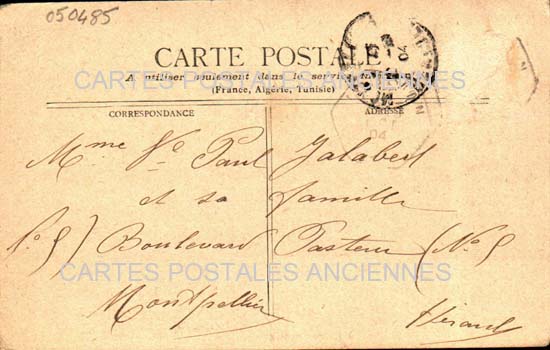 050485
CARTE POSTALE
A utiliser seulement dans le service intérieur
(France, Algérie, Tunisie)
CORRESPONDANCE
ADRESSE
CARTES POSTALES ANCIENNES
Mme Ve Paul Jalabert
et sa famille
Boulevard Pasteur (No 5
CARTES POSTALES ANCIENNES
Montpellier
Hérault